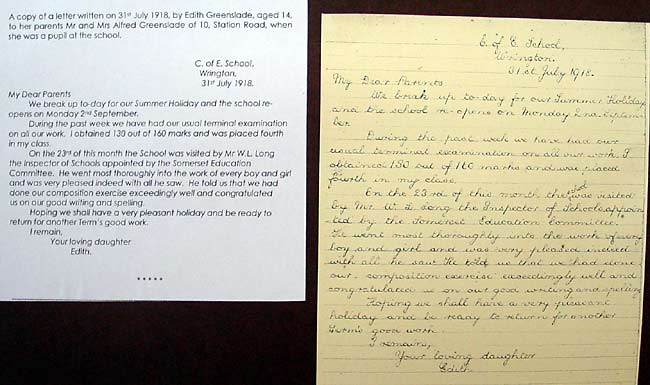 A copy of a letter written on 31st July 1918, by Edith Greenslade, aged 14,
to her parents Mr and Mrs Alfred Greenslade of 10, Station Road, when
she was a pupil at the school.
C. of E. School,
Wrington,
31st July 1918.
My Dear Parents
We break up to-day for our Summer Holiday and the school re-
opens on Monday 2nd September.
During the past week we have had our usual terminal examination
on all our work. I obtained 130 out of 160 marks and was placed fourth
in my class.
On the 23rd of this month the School was visited by Mr W.L. Long
the Inspector of Schools appointed by the Somerset Education
Committee. He went most thoroughly into the work of every boy and girl
and was very pleased indeed with all he saw. He told us that we had
done our composition exercise exceedingly well and congratulated
us on our good writing and spelling.
Hoping we shall have a very pleasant holiday and be ready to
return for another Term's good work.
I remain,
Your loving daughter
Edith.
*****
C. of E. School,
Wrington.
31st July 1918.
My Dear Parents
We break up to-day for our Summer Holiday
and the school re-opens on Monday 2nd. Septem-
ber.
During the past week we have had our
usual terminal examination on all our work. I
obtained 130 out of 160 marks and was placed
fourth in my class.
On the 23rd of this month the School was visited
by Mr W. L Long the Inspector of Schools appoin-
ted by the Somerset Education Committee.
He went most thoroughly into the work of every
boy and girl and was very pleased indeed
with all he saw. He told us that we had done
our composition exercise exceedingly well and
congratulated us on our good writing and spelling.
Hoping we shall have a very pleasant
holiday and be ready to return for another
Term's good work.
I remain,
Your loving daughter
Edith.